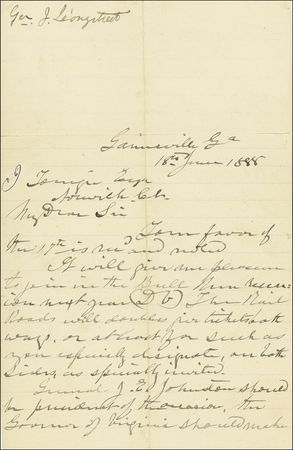 Gen. J. Longstreet
Gainesville Ga
18th June 1888
J Esqr
Norwich Ct.
My Dear Sir
Your favor of
the 17th is recd and noted
It will give me pleasure
to join in the Bull Run reun-
ion next year D V The Rail
Roads will doubless give tickets both
ways, or at least for such as
you especially designate, on both
sides, as specially invited.
General J. E. Johnston should
be president of the occasion, the
Governor of Virginia should make